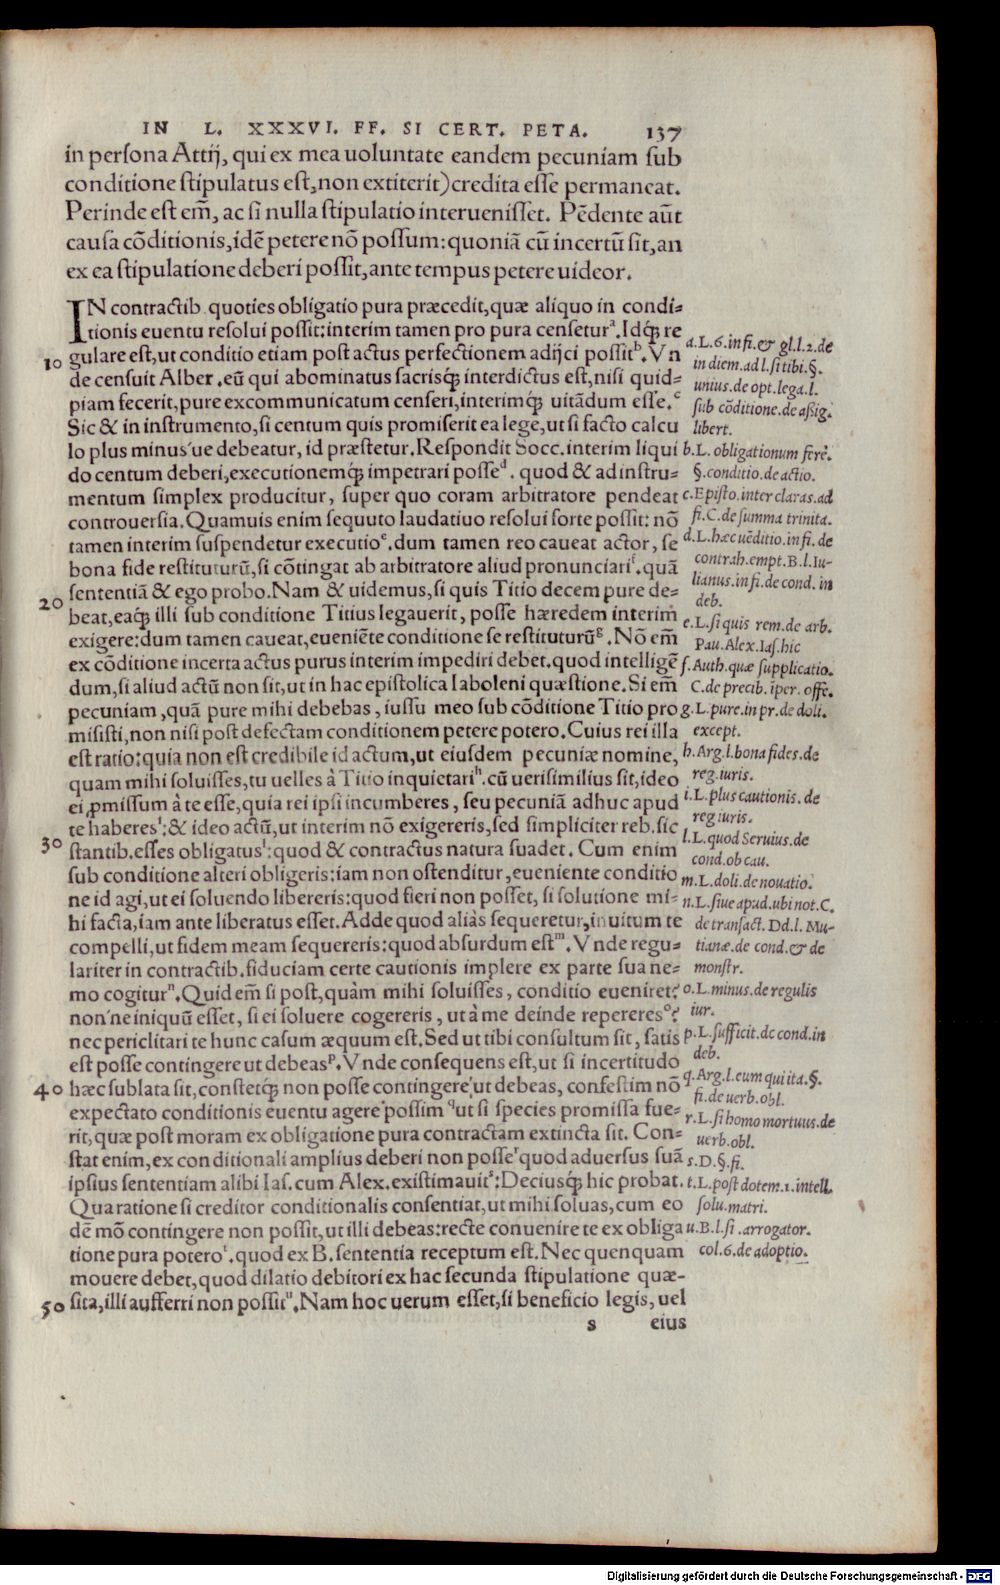 IN L. XXXVI. FF. SI CERT. PETA. 137
in persona Attij, qui ex mea uoluntate eandem pecuniam sub
conditione stipulatus est, non extiterit) credita esse permaneat.
Perinde est em̃, ac si nulla stipulatio interuenisset. Pẽdente aũt
causa cõditionis, idẽ petere nõ possum: quoniã cũ incertũ sit, an
ex ea stipulatione deberi possit, ante tempus petere uideor.
IN contractib. quoties obligatio pura præcedit, quæ aliquo in condi-
tionis euentu resolui possit: interim tamen pro pura censetur a. Idq́; re
10 gulare est, ut conditio etiam post actus perfectionem adijci possit b. Vn
de censuit Alber. eũ qui abominatus sacrisq́; interdictus est, nisi quid-
piam fecerit, pure excommunicatum censeri, interimq́; uitãdum esse. c
Sic & in instrumento, si centum quis promiserit ea lege, ut si facto calcu
lo plus minus'ue debeatur, id præstetur. Respondit Socc. interim liqui
do centum deberi, executionemq́; impetrari posse d. quod & ad instru-
mentum simplex producitur, super quo coram arbitratore pendeat
controuersia. Quamuis enim sequuto laudatiuo resolui forte possit: nõ
tamen interim suspendetur executio e. dum tamen reo caueat actor, se
bona fide restituturũ, si cõtingat ab arbitratore aliud pronunciari f. quã
sententiã & ego probo. Nam & uidemus, si quis Titio decem pure de-
20 beat, eaq́; illi sub conditione Titius legauerit, posse hæredem interim
exigere: dum tamen caueat, eueniẽte conditione se restituturũ g. Nõ em̃
ex cõditione incerta actus purus interim impediri debet. quod intelligẽ
dum, si aliud actũ non sit, ut in hac epistolica Iaboleni quæstione. Si em̃
pecuniam, quã pure mihi debebas, iussu meo sub cõditione Titio pro
misisti, non nisi post defectam conditionem petere potero. Cuius rei illa
est ratio: quia non est credibile id actum, ut eiusdem pecuniæ nomine,
quam mihi soluisses, tu uelles à Titio inquietari h. cũ uerisimilius sit, ideo
ei ꝓmissum à te esse, quia rei ipsi incumberes, seu pecuniã adhuc apud
te haberes i: & ideo actũ, ut interim nõ exigereris, sed simpliciter reb. sic
30 stantib. esses obligatus l: quod & contractus natura suadet. Cum enim
sub conditione alteri obligeris: iam non ostenditur, eueniente conditio
ne id agi, ut ei soluendo libereris: quod fieri non posset, si solutione mi-
hi facta, iam ante liberatus esset. Adde quod aliàs sequeretur, inuitum te
compelli, ut fidem meam sequereris: quod absurdum est m. Vnde regu-
lariter in contractib. fiduciam certe cautionis implere ex parte sua ne-
mo cogitur n. Quid em̃ si post, quàm mihi soluisses, conditio eueniret?
non'ne iniquũ esset, si ei soluere cogereris, ut à me deinde repereres o?
nec periclitari te hunc casum æquum est. Sed ut tibi consultum sit, satis
est posse contingere ut debeas p. Vnde consequens est, ut si incertitudo
40 hæc sublata sit, constetq́; non posse contingere ut debeas, confestim nõ
expectato conditionis euentu agere possim q ut si species promissa fue-
rit, quæ post moram ex obligatione pura contractam extincta sit. Con-
stat enim, ex conditionali amplius deberi non posse r quod aduersus suã
ipsius sententiam alibi Ias. cum Alex. existimauit s: Deciusq́; hic probat.
Qua ratione si creditor conditionalis consentiat, ut mihi soluas, cum eo
dẽ mõ contingere non possit, ut illi debeas: recte conuenire te ex obliga
tione pura potero t. quod ex B. sententia receptum est. Nec quenquam
mouere debet, quod dilatio debitori ex hac secunda stipulatione quæ-
50 sita, illi aufferri non possit u. Nam hoc uerum esset, si beneficio legis, uel
s eius
a. L. 6. in fi. & gl. l. 2. de
in diem. ad l. si tibi. §.
unius. de opt. lega. l.
sub cõditione. de assig.
libert.
b. L. obligationum ferè.
§. conditio. de actio.
c. Episto. inter claras. ad
fi. C. de summa trinita.
d. L. hæc uẽditio. in fi. de
contrah. empt. B. l. Iu-
lianus. in fi. de cond. in
deb.
e. L. si quis rem. de arb.
Pau. Alex. Ias. hic
f. Auth. quæ supplicatio.
C. de precib. ĩper. offe.
g. L. pure. in pr. de doli.
except.
h. Arg. l. bona fides. de
reg. iuris.
i. L. plus cautionis. de
reg iuris.
l. L. quod Seruius. de
cond. ob cau.
m. L. doli. de nouatio.
n. L. siue apud. ubi not. C.
de transact. Dd. l. Mu-
tianæ. de cond. & de
monstr.
o. L. minus. de regulis
iur.
p. L. sufficit. de cond. in
deb.
q. Arg. l. eum qui ita. §.
fi. de uerb. obl.
r. L. si homo mortuus. de
uerb. obl.
s. D. §. fi.
t. L. post dotem. 1. intell.
solu. matri.
u. B. l. si. arrogator.
col. 6. de adoptio.
Digitalisierung gefördert durch die Deutsche Forschungsgemeinschaft - DFG